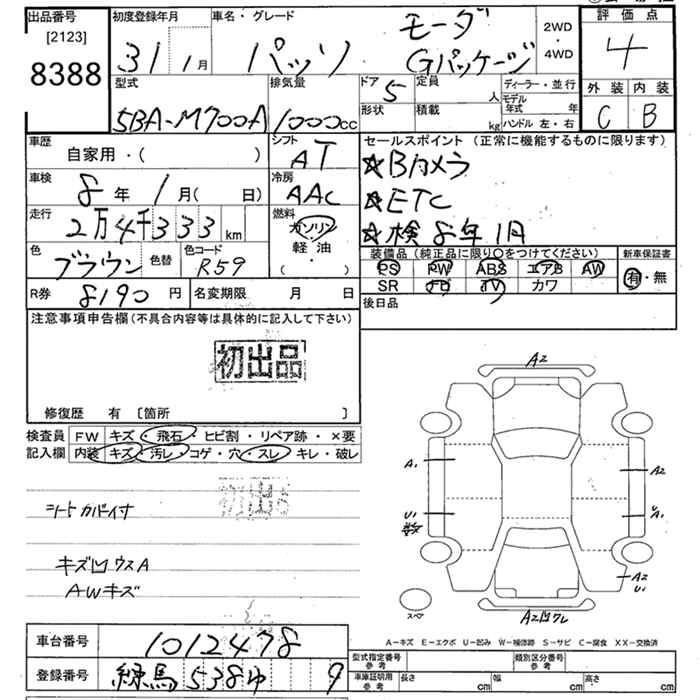 出品番号
[2123]
8388
初度登録年月
31 1月
車名・グレード
パッソ モーダ Gパッケージ
2WD
・
4WD
評価点
4
外装 内装
C B
型式
5BA-M700A
排気量
1000cc
ドア 5
定員 人
形状
積載 kg
ディーラー・並行
モデル年式 年
ハンドル 左・右
車歴
自家用・( )
シフト
AT
セールスポイント (正常に機能するものに限ります)
☆Bカメラ
☆ETC
☆検 8年1月
車検
8年 1月( 日)
冷房
AAC
走行
2万4千333km
燃料
ガソリン
軽油
( ・ )
色
ブラウン
色替
色コード
R59
装備品 (純正品に限り○をつけてください)
PS PW ABS エアB AW
SR TV カワ
新車保証書
有・無
R券 8190円
名変期限 月 日
後日品
注意事項申告欄(不具合内容等は具体的に記入して下さい)
初出品
修復歴 有 [箇所 ]
検査員
記入欄
FW キズ・飛石・ヒビ割・リペア跡・×要
内装 キズ・汚レ・コゲ・穴・スレ・キレ・破レ
初出品
シートカバー付
キズ凹ウスA
AWキズ
A2
A1
A2
U1
A1
A2
U1
スペア
A2凹ワレ
A-キズ E-エクボ U-凹み W-補修跡 S-サビ C-腐食 XX-交換済
車台番号
1012478
登録番号
練馬 538 ゆ 9
型式指定番号 参考
類別区分番号 参考
車庫証明用 参考
長さ cm
幅 cm
高さ cm